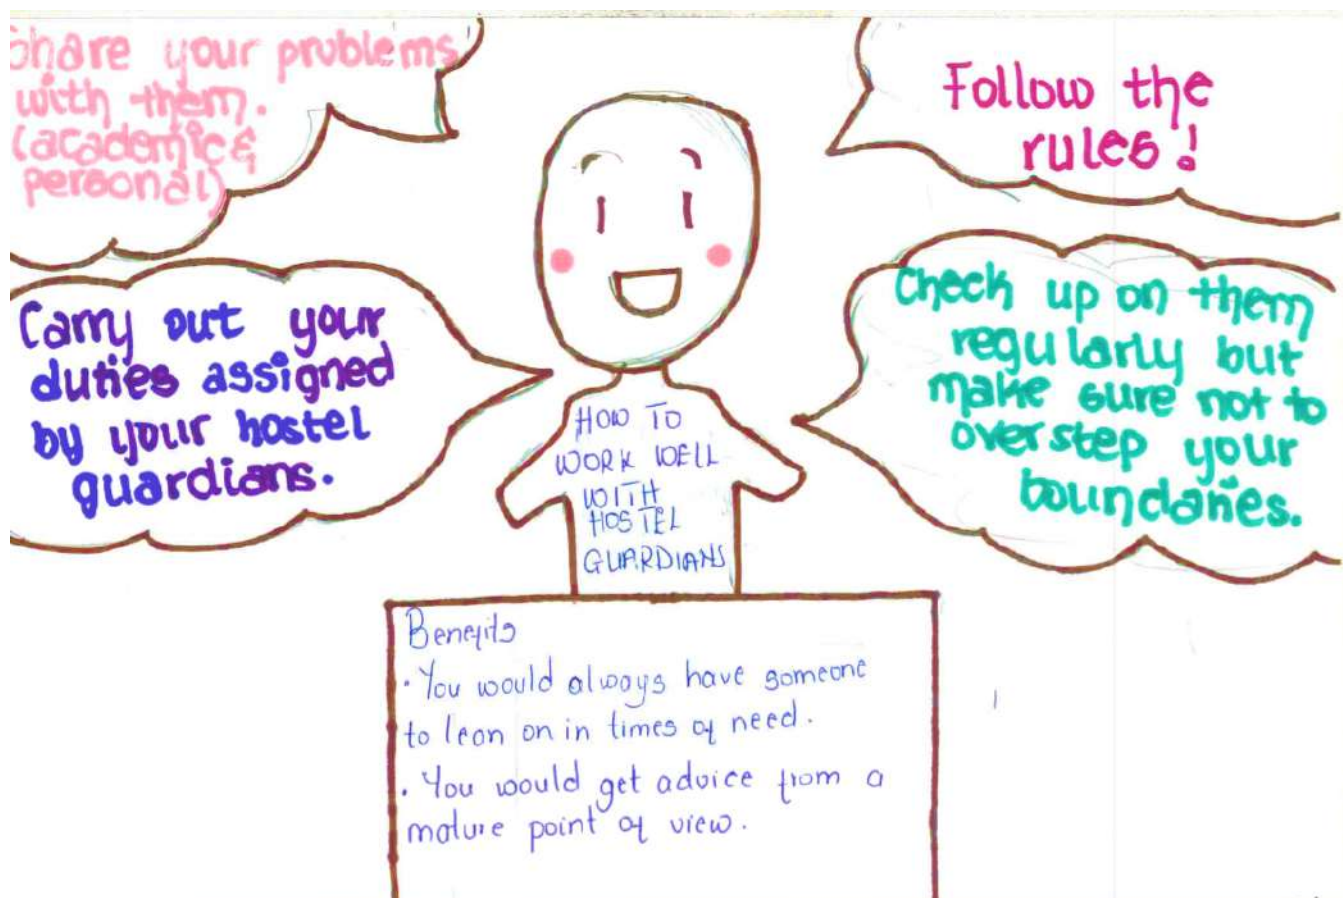 Share your problems
with them.
(academic &
personal)
Follow the
rules!
Carry out your
duties assigned
by your hostel
guardians.
Check up on them
regularly but
make sure not to
overstep your
boundaries.
HOW TO
WORK WELL
WITH
HOSTEL
GUARDIANS
Benefits
• You would always have someone
to lean on in times of need.
• You would get advice from a
mature point of view.